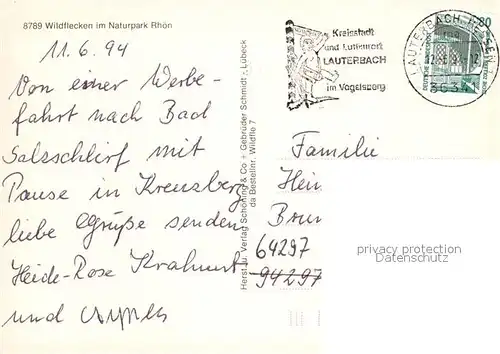 8789 Wildflecken im Naturpark Rhön
11.6.94
Von einer Werbe-
fahrt nach Bad
Salzschlirf mit
Pause in Kreuzberg
liebe Grüße senden
Heide-Rose
und
Herst. u. Verlag Schöning & Co + Gebrüder Schmidt · Lübeck
da Bestellnr. Wildfle 7
Kreisstadt
und Luftkurort
LAUTERBACH
im Vogelsberg
LAUTERBACH, HESSEN
80
Familie
Hein
Brun
64297
94297
privacy protection
Datenschutz